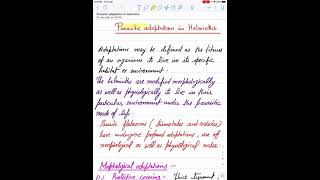 Parasitic adaptation in Helminthes
Adaptations may be defined as the fitness
of an organisms to live in its specific
habitat or environment.
The helminths are modified morphologically
as well as physiologically to live in their
particular environment under the parasitic
mode of life.
Parasitic flatworms (trematodes and cestodes)
have undergone profound adaptations, are of
morphological as well as physiological nature
Morphological adaptations -
(1) Protective covering - Thick tegument